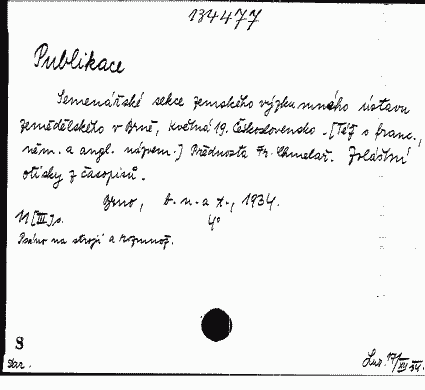 134477
Publikace
Semenářské sekce zemského výzkumného ústavu
zemědělského v Brně, Květná 19. Československo. - [Též s franc.,
něm. a angl. názvem.] Přednosta Fr. Chmelař. Zvláštní
otisky z časopisů.
Brno, b. n. a t., 1934.
11 [III] s. 4°
Psáno na stroji a rozmnož.
8
Dar. Lus. 17/XII 34.